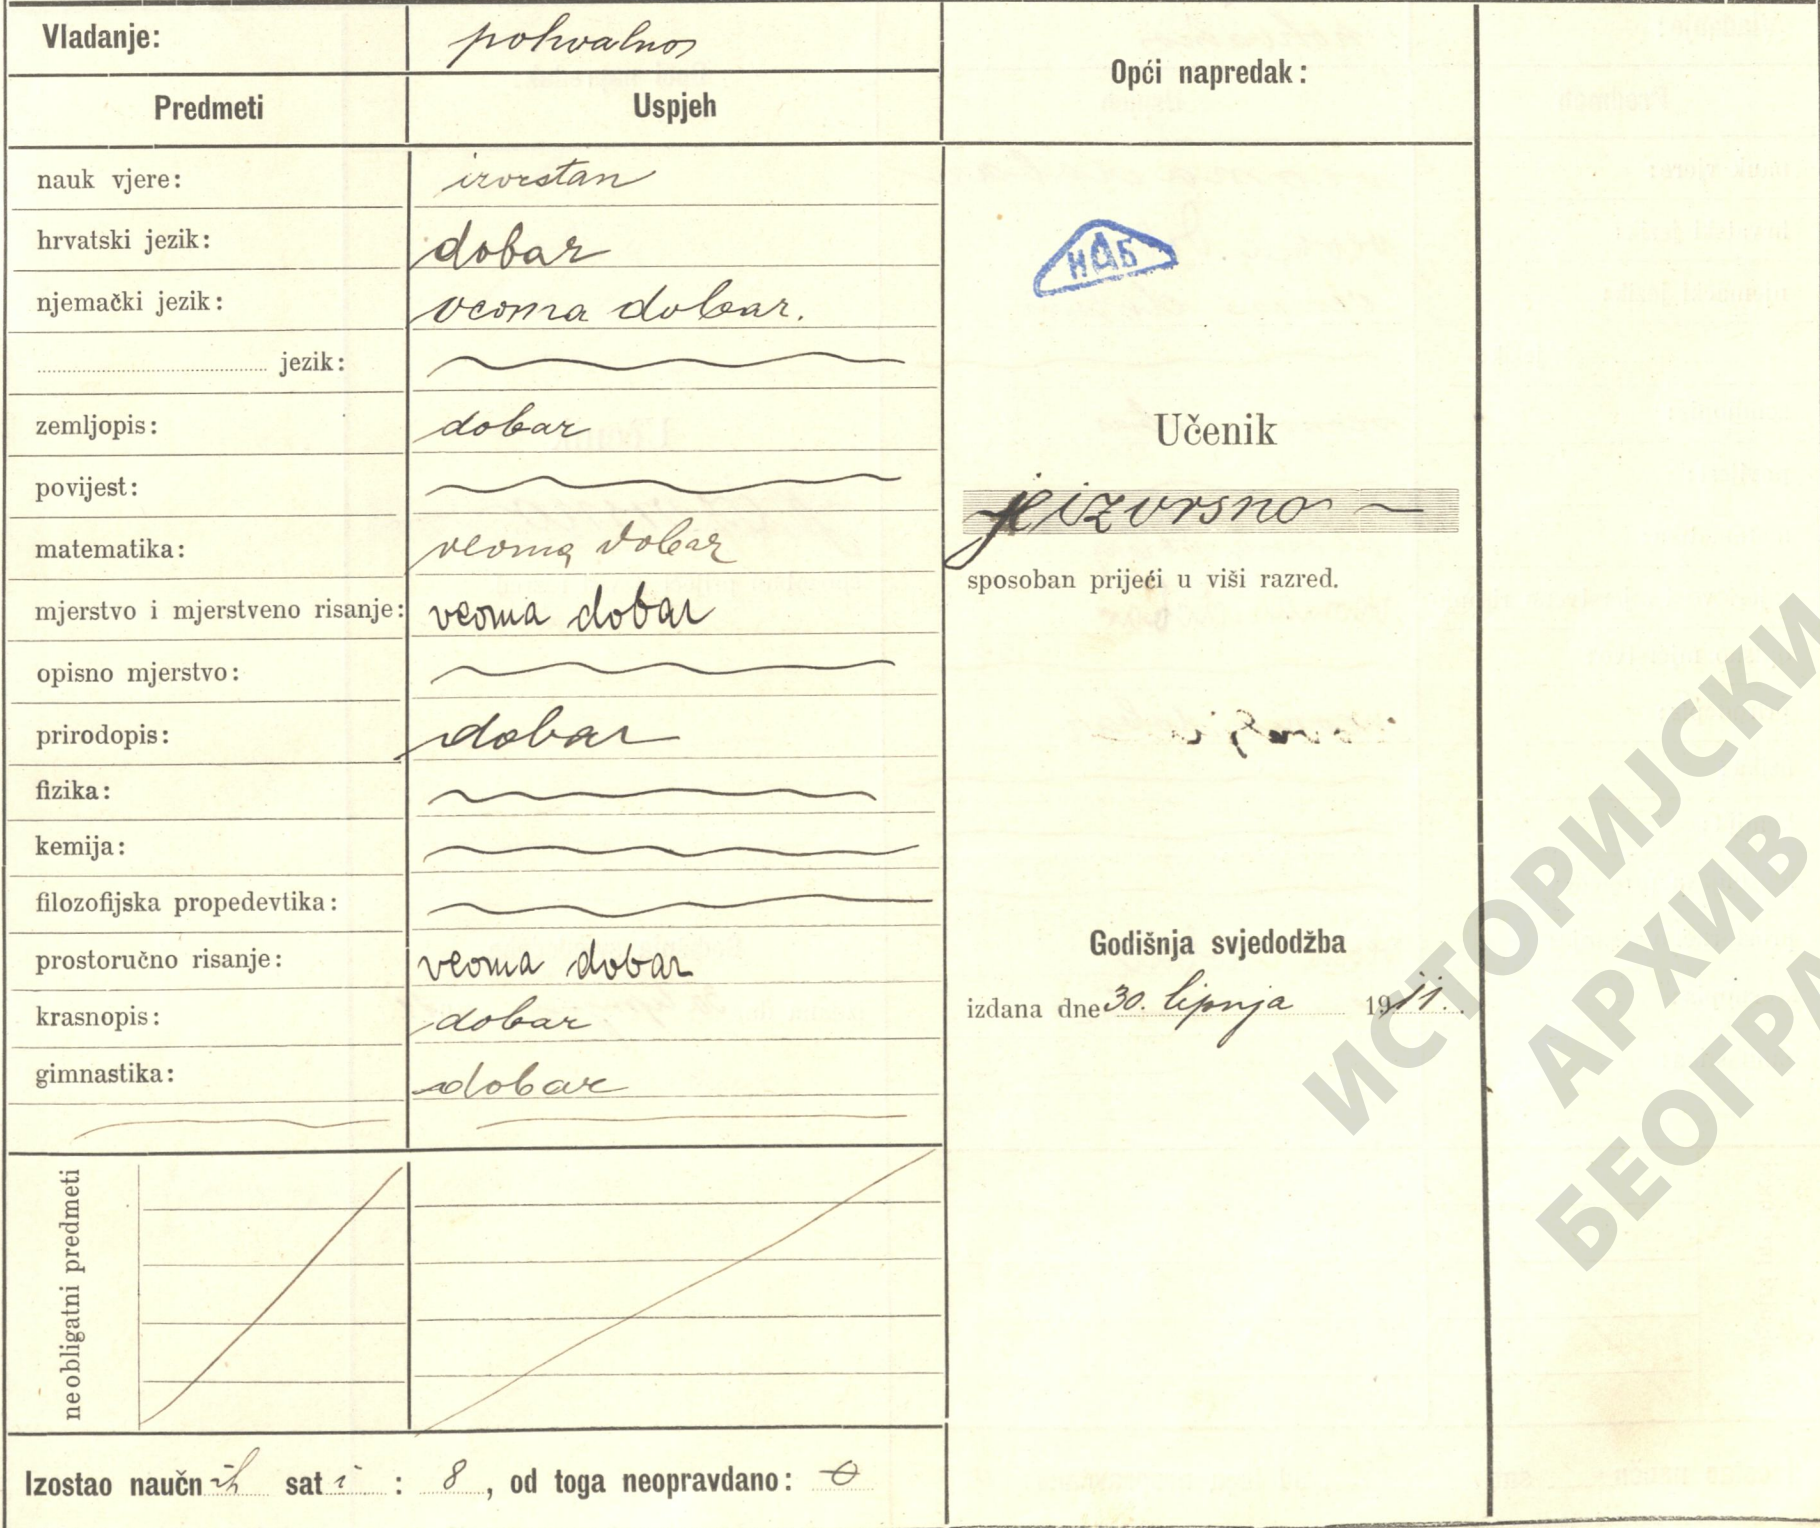 Vladanje: pohvalno
Predmeti Uspjeh
nauk vjere: izvrstan
hrvatski jezik: dobar
njemački jezik: veoma dobar.
jezik:
zemljopis: dobar
povijest:
matematika: veoma dobar
mjerstvo i mjerstveno risanje: veoma dobar
opisno mjerstvo:
prirodopis: dobar
fizika:
kemija:
filozofijska propedevtika:
prostoručno risanje: veoma dobar
krasnopis: dobar
gimnastika: dobar
neobligatni predmeti
Izostao naučnih sati: 8, od toga neopravdano: 0
Opći napredak:
ИАБ
Učenik
je izvrsno
sposoban prijeći u viši razred.
Godišnja svjedodžba
izdana dne 30. lipnja 1911.
ИСТОРИЈСКИ
АРХИВ
БЕОГРА